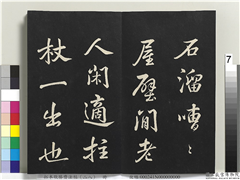 石溜嘈〻
屋壁間老
人閑適拄
杖一出也
7